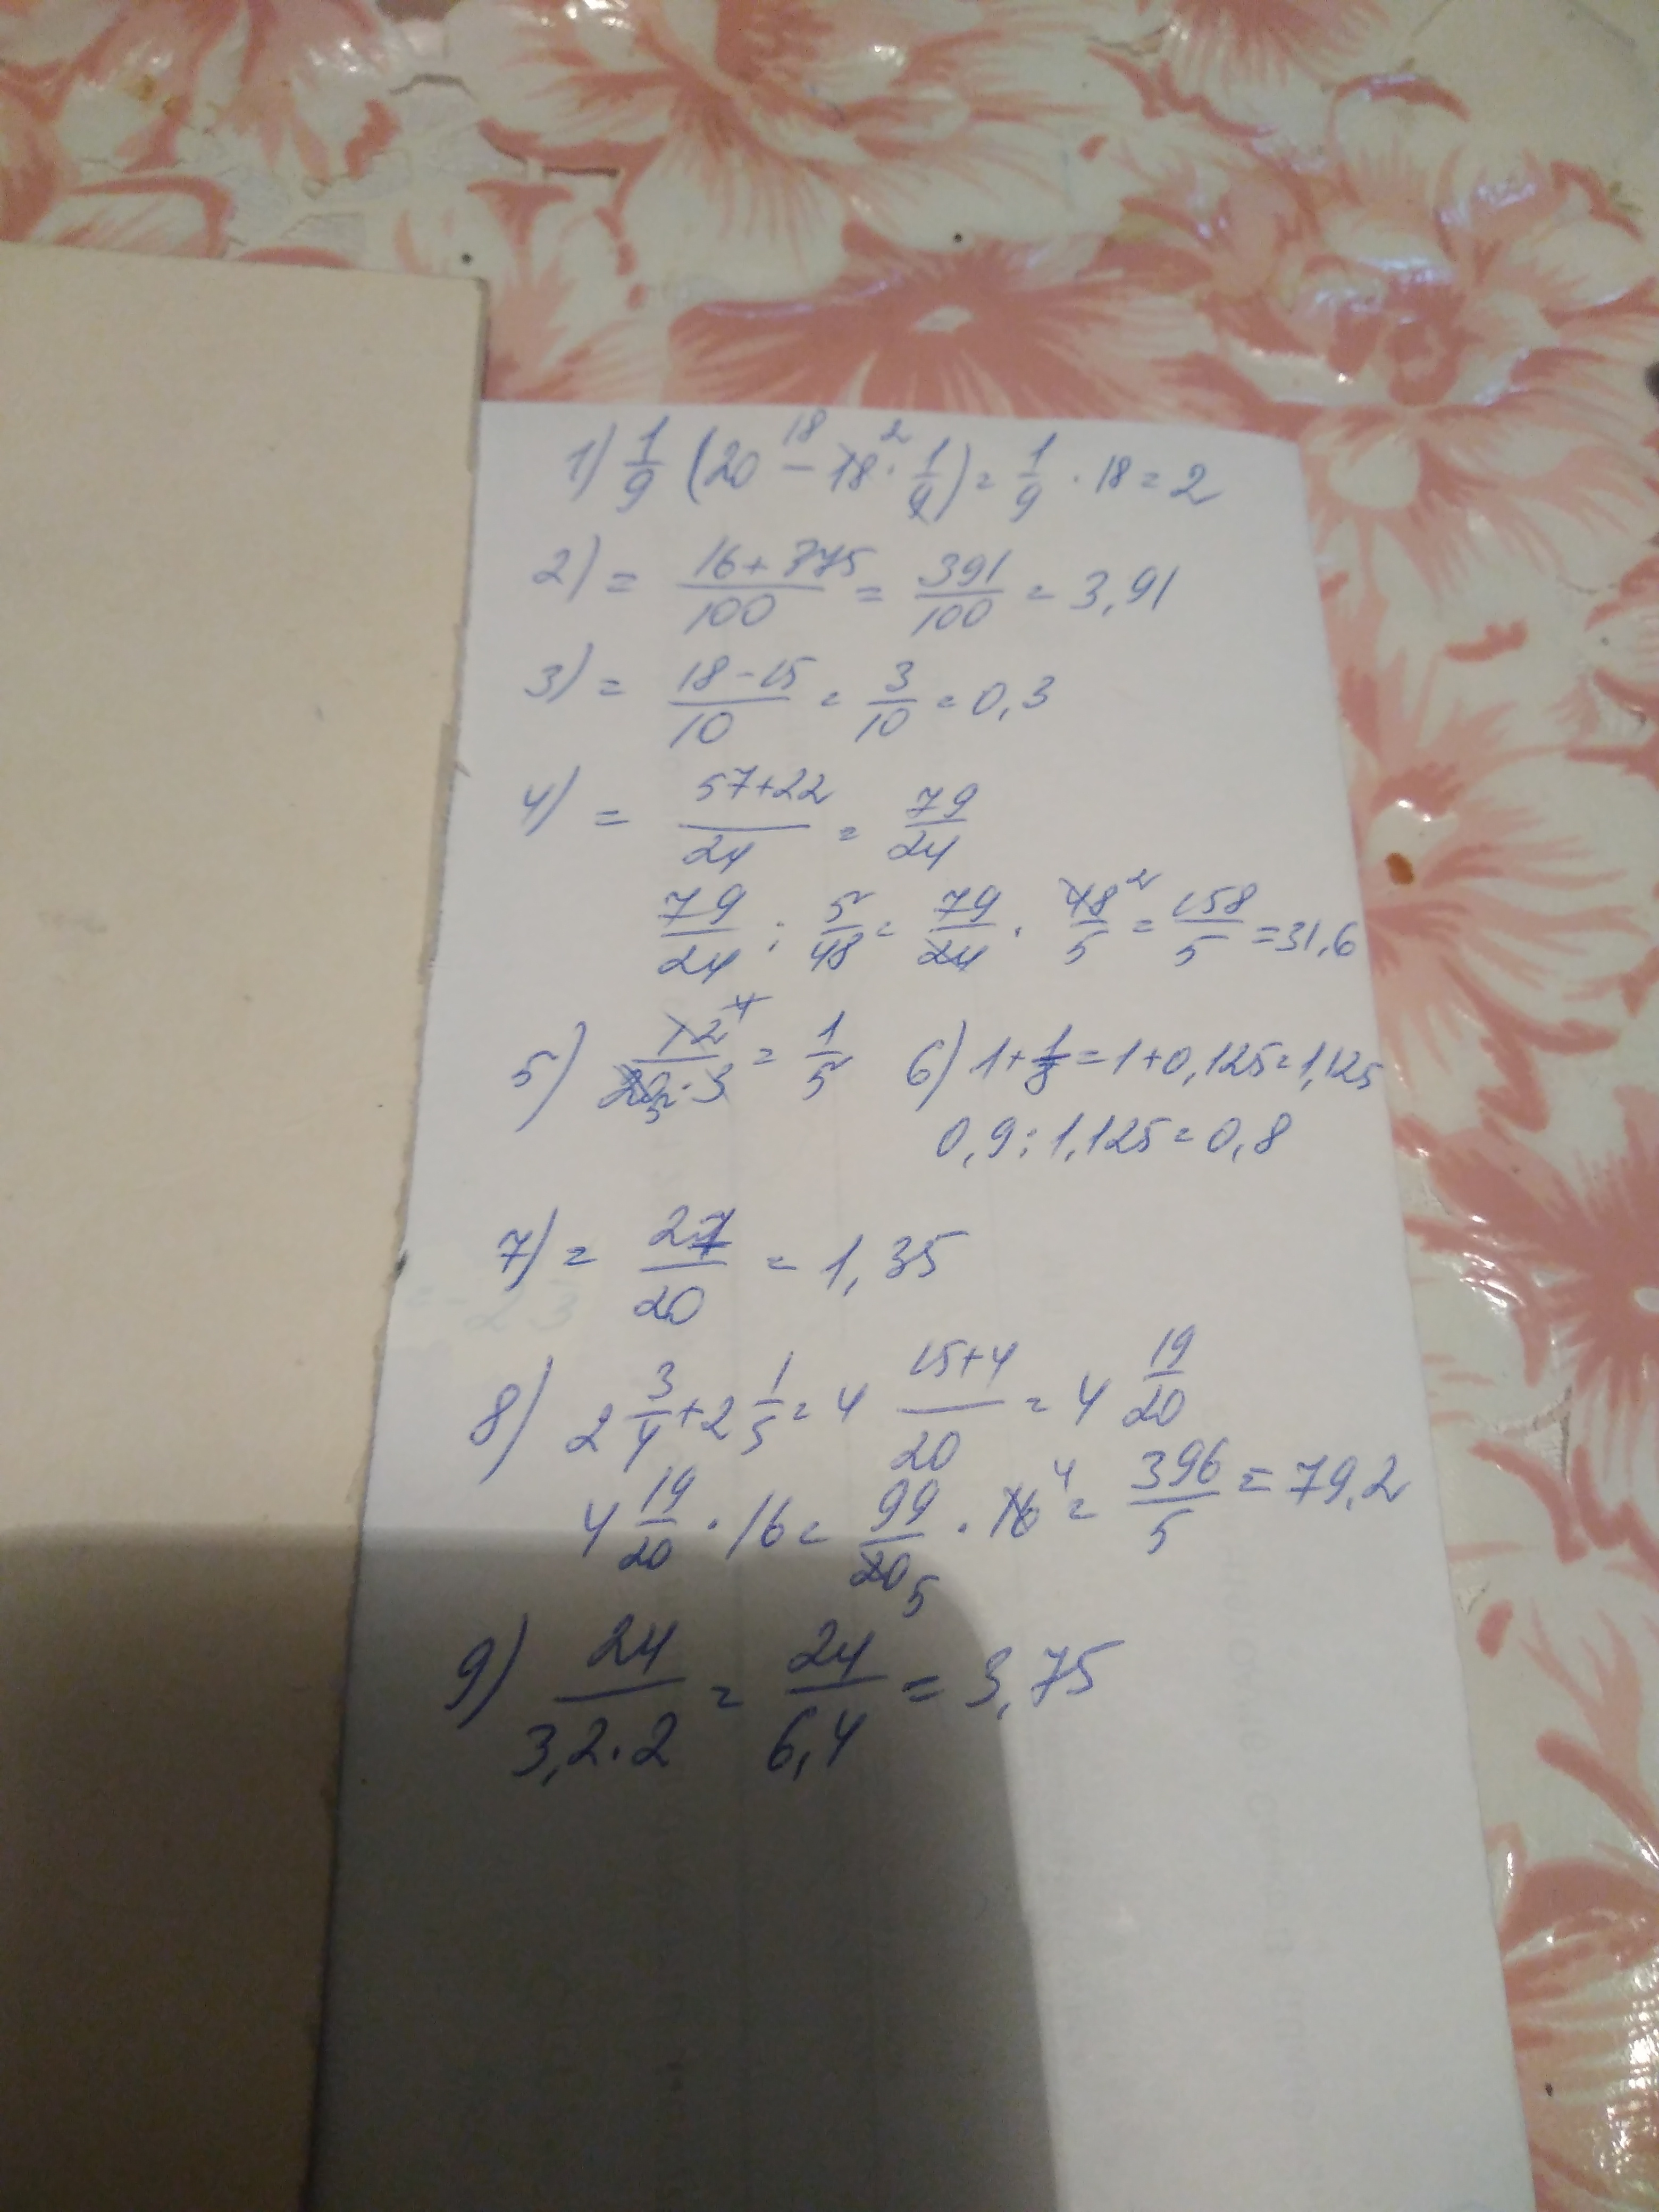 1) 1/9 (20 - 18 · 1/9) = 1/9 · 18 = 2
18 2
2) = (16 + 375)/100 = 391/100 = 3,91
3) = (18 - 15)/10 = 3/10 = 0,3
4) = (57 + 22)/24 = 79/24
79/24 : 5/48 = 79/24 · 48²/5 = 158/5 = 31,6
5) 12/(20 · 3) = 1/5
6) 1 + 1/8 = 1 + 0,125 = 1,125
0,9 : 1,125 = 0,8
7) = 27/20 = 1,35
8) 2 3/4 + 2 1/5 = 4 (15+4)/20 = 4 19/20
4 19/20 · 16 = 99/20 · 16 = 396/5 = 79,2
5 4
9) 24/(3,2 · 2) = 24/6,4 = 3,75